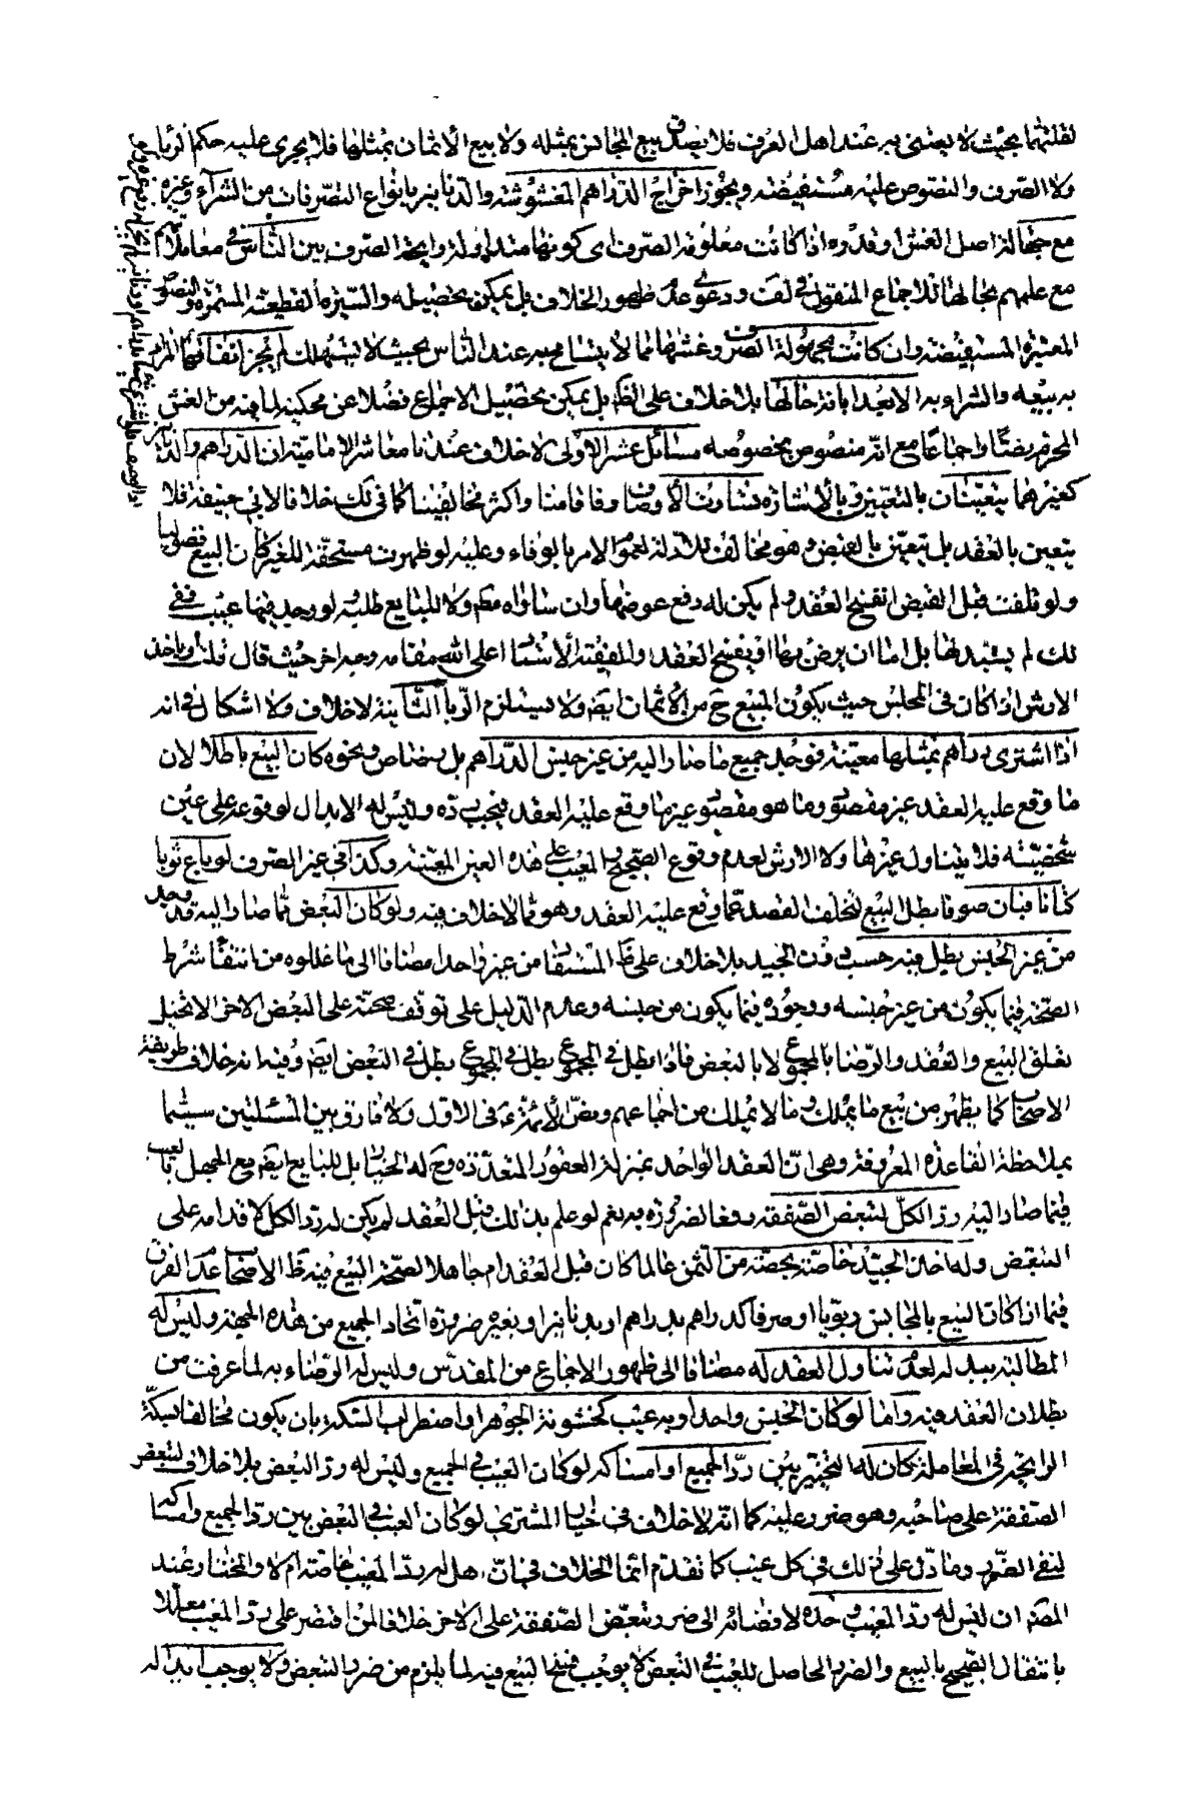 لقلتهما بحيث لا يعتنى به عند اهل العرف فلا يصدق بيع المجانس بمثله ولا بيع الأثمان بمثلها فلا يجرى عليه حكم الربا
ولا الصرف والنصوص عليه مستفيضة ويجوز اخراج الدراهم المغشوشة والدنانير بانواع التصرفات من الشراء وغيره
مع جهالة اصل الغش او قدره اذا كانت معلومة الصرف اى كونها متداولة رايجة الصرف بين الناس فى معاملاتهم
مع علمهم بحالها للاجماع المنقول فى لف ودعوى عدم ظهور الخلاف بل يمكن تحصيله والسيرة القطعية المستمرة والنصوص
المعتبرة المستفيضة وان كانت مجهولة الصرف وغشها مما لا يتسامح به عند الناس بحيث لا يستهلك لم يجز انفاقها
به بيعه والشراء به الا بعد ابانة حالها بلا خلاف على الظ بل يمكن تحصيل الاجماع فضلا عن محكيه لما فيه من الغش
المحرم نصّا واجماعا مع انّه منصوص بخصوصه مسائل عشر الاولى لا خلاف عندنا معاشر الامامية ان الدراهم والدنانير
كغيرهما يتعينان بالتعيين وبالأشارة تساوت الأوصاف وفاقا منا واكثر مخالفينا كما فى لك خلافا لابى حنيفة فلا
يتعين بالعقد بل يتعين بالقبض وهو مخالف للادلة لعموم الامر بالوفاء وعليه لو ظهرت مستحقة للغير كان البيع فضوليا
ولو تلفت قبل القبض انفسخ العقد ولم يكن له دفع عوضها وان ساواه مط ولا للبايع طلبه لو وجد فيها عيب ففى
لك لم يستبدلها بل اما ان يرضى بها او يفسخ العقد والحقيقة الأشيا اعلى الله مقامه وجه اخر حيث قال قلت او ياخذ
الارش اذا كان فى المجلس حيث يكون المبيع ح من الأثمان ايض ولا يستلزم الربا الثانية لا خلاف ولا اشكال فى انه
اذا اشترى دراهم بمثلها معيّنة فوجد جميع ما صار اليه من غير جنس الدراهم بل رصاص ونحوه كان البيع باطلا لان
ما وقع عليه العقد غير مقصود وما هو مقصود غير ما وقع عليه العقد فيجب رده وليس له الابدال لوقوعه على عين
شخصيّة فلا يتناول غيرها ولا الارش لعدم وقوع الصحيح والمعيب على هذه العين المعيّنة وكذا فى غير الصرف لو باع ثوبا
كتانا فبان صوفا بطل البيع لتخلف القصد عما وقع عليه العقد وهو مما لا خلاف فيه ولو كان البعض مما صار اليه قد وجد
من غير الجنس بطل فيه حسب دون الجيد بلا خلاف على ظ المستفا من غير واحد مضافا الى ما عللوه من انتفاء شرط
الصحة فيما يكون من غير جنسه ووجوده فيما يكون من جنسه وعدم الدليل على توقف صحته على البعض الاخر الا تخيل
تعلق البيع والعقد والرضا بالمجموع لا بالبعض فاذا بطل فى المجموع بطل فى المجموع بطل فى البعض ايض وفيه انه خلاف طريقة
الاصحاب كما يظهر من بيع ما يملك وما لا يملك من اجماعهم ونصّ الأئمة ع فى الاول ولا فارق بين المسئلتين سيما
بملاحظة القاعدة المعروفة وهى انّ العقد الواحد بمنزلة العقود المتعددة وح له الخيار بل للبايع ايض مع الجهل بالعيب
فيما صار اليه رد الكلّ لتبعض الصفقة دفعا لضرره به نعم لو علم بذلك قبل العقد لم يكن له رد الكل لاقدامه على
التبعض وله اخذ الجيّد خاصّة بحصّته من الثمن عالما كان قبل العقد ام جاهلا لصحة البيع فيه ظ الاصحاب عدم الفرق
فيما اذا كان البيع بالمجانس ربويّا او صرفا كدراهم بدراهم او بدنانير او بغيره ضرورة اتحاد الجميع من هذه الجهة وليس له
المطالبة ببدله لعدم تناول العقد له مضافا الى ظهور الاجماع من المقدس وليس له الرضاء به لما عرفت من
بطلان العقد فيه واما لو كان الجنس واحدا وبه عيب كخشونة الجوهر او اضطراب السكة بان يكون مخالفا لسكّة
الرايجة فى المعاملة كان له التخيير بين ردّ الجميع او امساكه لو كان العيب فى الجميع وليس له رد البعض بلا خلاف لتبعض
الصفقة على صاحبه وهو ضرر عليه كما انّه لا خلاف فى خيار المشترى لو كان العيب فى البعض بين ردّ الجميع وامساكه
لنفى الضرر وما دلّ على ذلك فى كل عيب كما تقدّم انما الخلاف فى انّ هل له ردّ المعيب خاصة ام لا والمختار عند
المص ان ليس له ردّ المعيب وحده لافضائه الى ضرر تبعّض الصفقة على الاخر خلافا لمن اقتصر على ردّ المعيب معللا
بانتقال الصحيح بالبيع والضرر الحاصل للعيب فى البعض لا يوجب فسخ البيع فيه لما يلزم من ضرر التبعض ولا يوجب ابداله